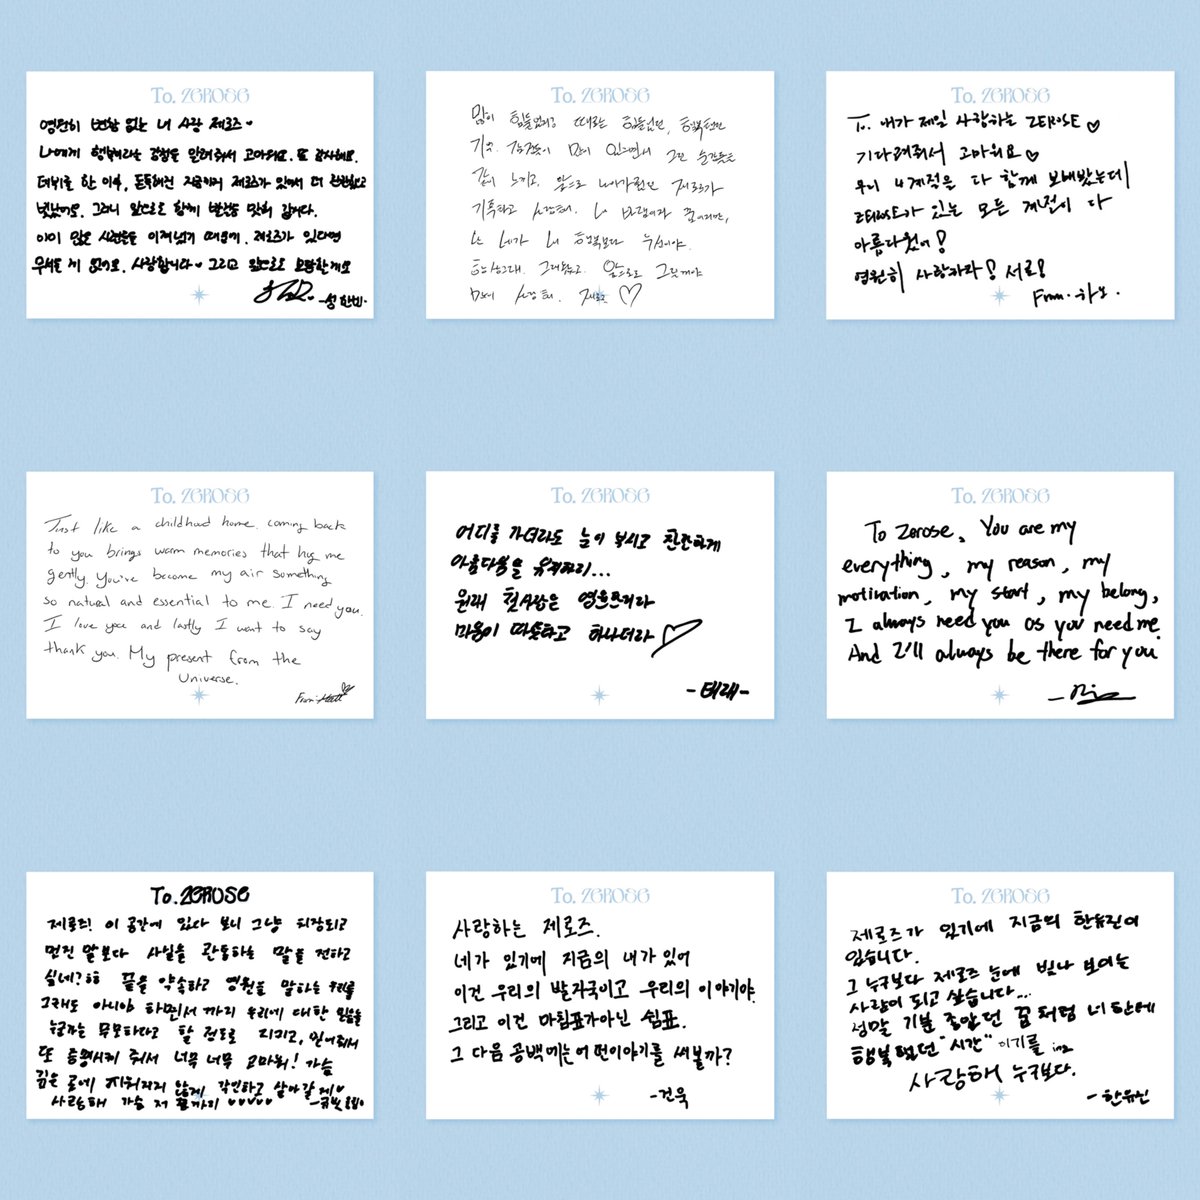 To. ZEROSE
영원히 변함 없는 내 사랑 제로즈♥
나에게 행복이라는 감정을 알려줘서 고마워요. 또 감사해요.
데뷔를 한 이후, 돈독해진 지금까지 제로즈가 있어서 더
빛났어요. 그러니 앞으로도 함께 발걸음 맞춰 갑시다.
이미 많은 시련들을 이겨냈기 때문에. 제로즈가 있다면
무서울 게 없어요. 사랑합니다♥ 그리고 앞으로도
-성한빈-
To. ZEROSE
많이 힘들었지? 때로는 힘들었던, 행복했던
많이 있으면서 그런 순간들을
같이 느끼고 앞으로 나아가면서 제로즈가
내 바램이자
는 네가 내 행복보다 우선이야.
그래왔고 앞으로도 그럴꺼야
제로즈 ♡
To. ZEROSE
To. 내가 제일 사랑하는 ZEROSE ♡
기다려줘서 고마워요♡
우리 4계절을 다 함께 보내봤는데
ZEROSE가 있는 모든 계절이 다
아름다웠어!
영원히 사랑하자! 서로!
From. 하오.
To. ZEROSE
Just like a childhood home. coming back
to you brings warm memories that hug me
gently. You've become my air something
so natural and essential to me. I need you.
I love you and lastly I want to say
thank you. My present from the
Universe.
From. Matt
To. ZEROSE
어디를 가더라도 눈이 부시고 찬란하게
아름다움을 유지하리...
원래 첫사랑은 영원토록이라
마음이 따뜻하고 하나더라 ♡
-태래-
To. ZEROSE
To Zerose, You are my
everything, my reason, my
motivation, my start, my belong,
I always need you as you need me.
And I'll always be there for you.
To. ZEROSE
제로즈! 이 공간에 있다 보니 그냥 치장되고
멋진 말보다 사실을 관통하는 말을 전하고
싶네?ㅎㅎ 끝을 약속하고 영원을 말하는 우리를
그래도 아니야 하면서 까지 우리에 대한 믿음을
누군가는 무모하다고 할 정도로 지키고, 믿어줘서
또 증명시켜 줘서 너무 너무 고마워! 가슴
깊은 곳에 지워지지 않게 각인하고 살아갈게♥
사랑해 가슴 저 끝까지 ♥♥♥♥♥
To. ZEROSE
사랑하는 제로즈.
네가 있기에 지금의 내가 있어
이건 우리의 발자국이고 우리의 이야기야.
그리고 이건 마침표가아닌 쉼표.
그 다음 공백에는 어떤이야기를 써볼까?
-건욱
To. ZEROSE
제로즈가 있기에 지금의 한유진이
있습니다.
그 누구보다 제로즈 눈에 빛나 보이는
사람이 되고 싶습니다...
정말 기분 좋았던 꿈처럼 너한테
행복했던 "시간" 이기를
사랑해 누구보다.
-한유진